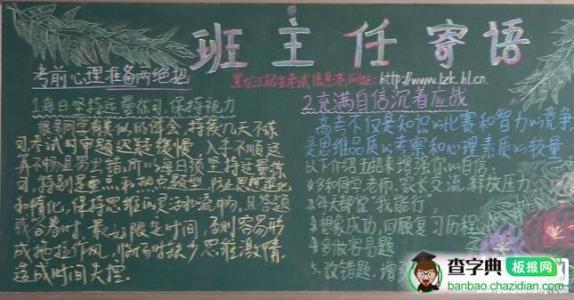 班主任寄语
考前心理准备两绝招
黑龙江招生考试信息港网址:http://www.lzk.hl.cn
1.每日坚持适量练习,保持视力
很多同学有类似的体会,持续几天不练
习考试时审题迟疑缓慢,入手不顺运
算不畅且易出错,所以每日须坚持适量练
习,特别是重点和热点题型,防止思想退化
和惰化,保持思维的灵活和流畅,且答题
或合卷时,最好限定时间,否则容易形
成拖拉作风,临场时缺少思维激情,
造成时间失控.
2.充满自信沉着应战
高考不仅是知识的比赛和智力的竞争,
更是思维品质的考察和心理素质的较量
以下介绍五招来增强你的自信.
1.多和同学老师、家长交流,释放压力
2.每天都堂"我能行"
3.想象成功,回顾复习历程
4.多做容易题
5.改错题,增
查字典 板报网
banbao.chazidian.com